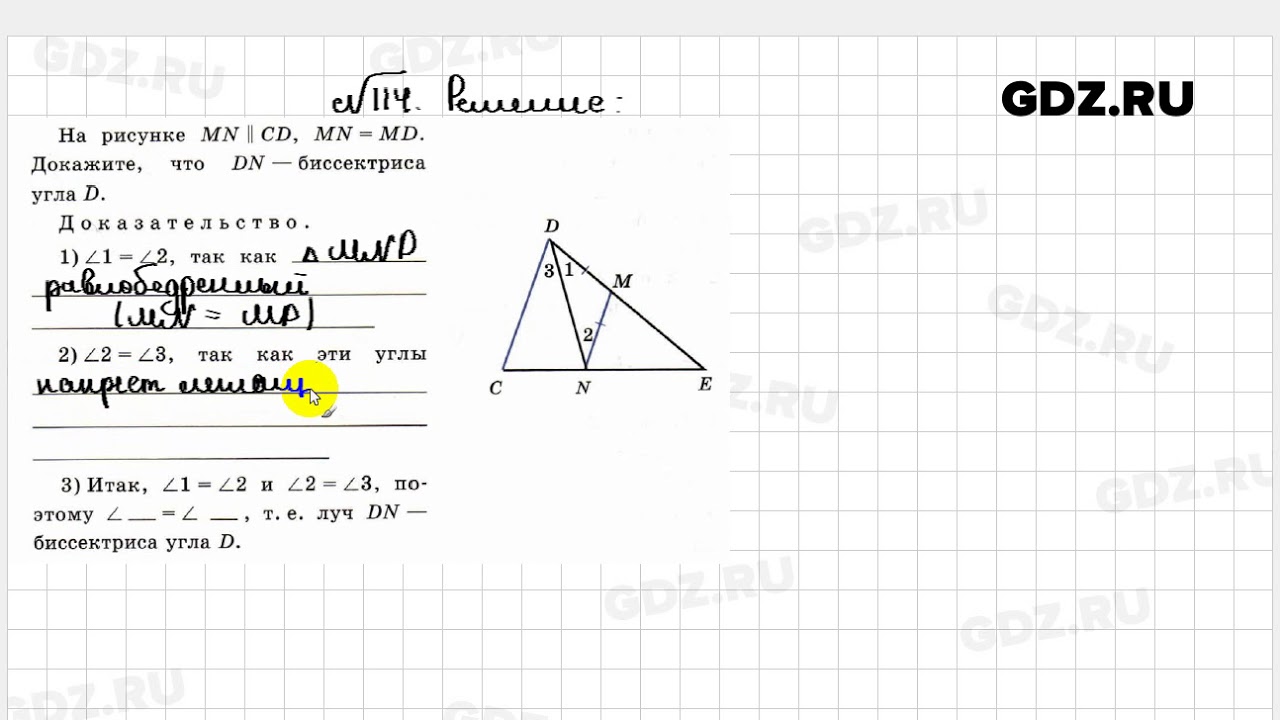 GDZ.RU
GDZ.RU
№114. Решение:
GDZ.RU
На рисунке MN ∥ CD, MN = MD.
Докажите, что DN — биссектриса
угла D.
Доказательство.
1) ∠1 = ∠2, так как △ MND
равнобедренный
(MN = MD)
2) ∠2 = ∠3, так как эти углы
накрест лежащ
3) Итак, ∠1 = ∠2 и ∠2 = ∠3, по-
этому ∠ __ = ∠ __, т. е. луч DN —
биссектриса угла D.
D
3 1
M
2
C N E
GDZ.RU
GDZ.RU
GDZ.RU
GDZ.RU
GDZ.RU
GDZ.RU
GDZ.RU
GDZ.RU